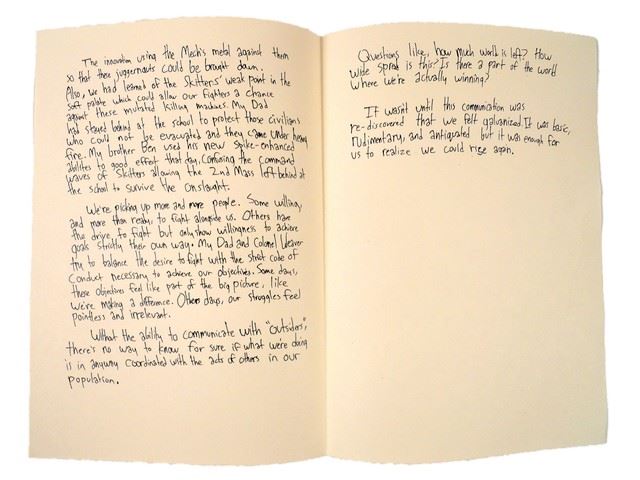 The innovation using the Mech's metal against them
so that these juggernauts could be brought down.
Also, we had learned of the Skitters' weak point in the
soft palate which could allow our fighters a chance
against these mutated killing machines. My Dad
had stayed behind at the school to protect those civilians
who could not be evacuated and they came under heavy
fire. My brother Ben used his new spike-enhanced
abilites to good effect that day, confusing the command
waves of Skitters allowing the 2nd Mass left behind at
the school to survive the onslaught.
We're picking up more and more people. Some willing,
and more than ready, to fight alongside us. Others have
the drive to fight but only show willingness to achieve
goals strictly their own way. My Dad and Colonel Weaver
try to balance the desire to fight with the strict code of
conduct necessary to achieve our objectives. Some days,
these objectives feel like part of the big picture, like
we're making a difference. Others days, our struggles feel
pointless and irrelevant.
Without the ability to communicate with "outsiders",
there's no way to know for sure if what we're doing
is in anyway coordinated with the acts of others in our
population.
Questions like, how much world is left? How
wide spread is this? Is there a part of the world
where we're actually winning?
It wasn't until this communication was
re-discovered that we felt galvanized. It was basic,
rudimentary, and antiquated but it was enough for
us to realize we could rise again.